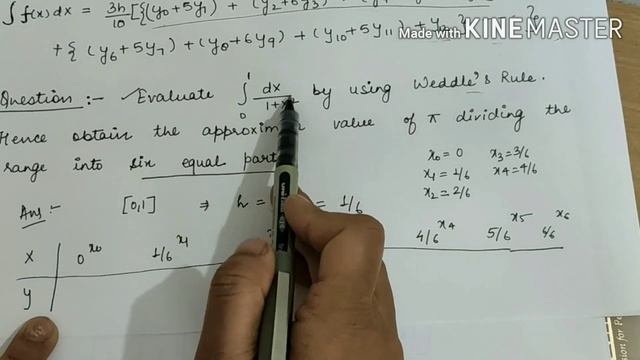 ∫ f(x) dx = 3h/10 [{(y0 + 5y1) + (y2 + 6y3) +
+ { (y6 + 5y7) + (y8 + 6y9) + (y10 + 5y11) +
Made with KINEMASTER
Question :- Evaluate ∫₀¹ dx/1+x² by using Weddle's Rule.
Hence obtain the approxim value of π dividing the
range into six equal part
x0 = 0 x3 = 3/6
x1 = 1/6 x4 = 4/6
x2 = 2/6
Ans :- [0,1] ⇒ h = = 1/6
x 0 x0 1/6 x1 4/6 x4 5/6 x5 6/6 x6
y